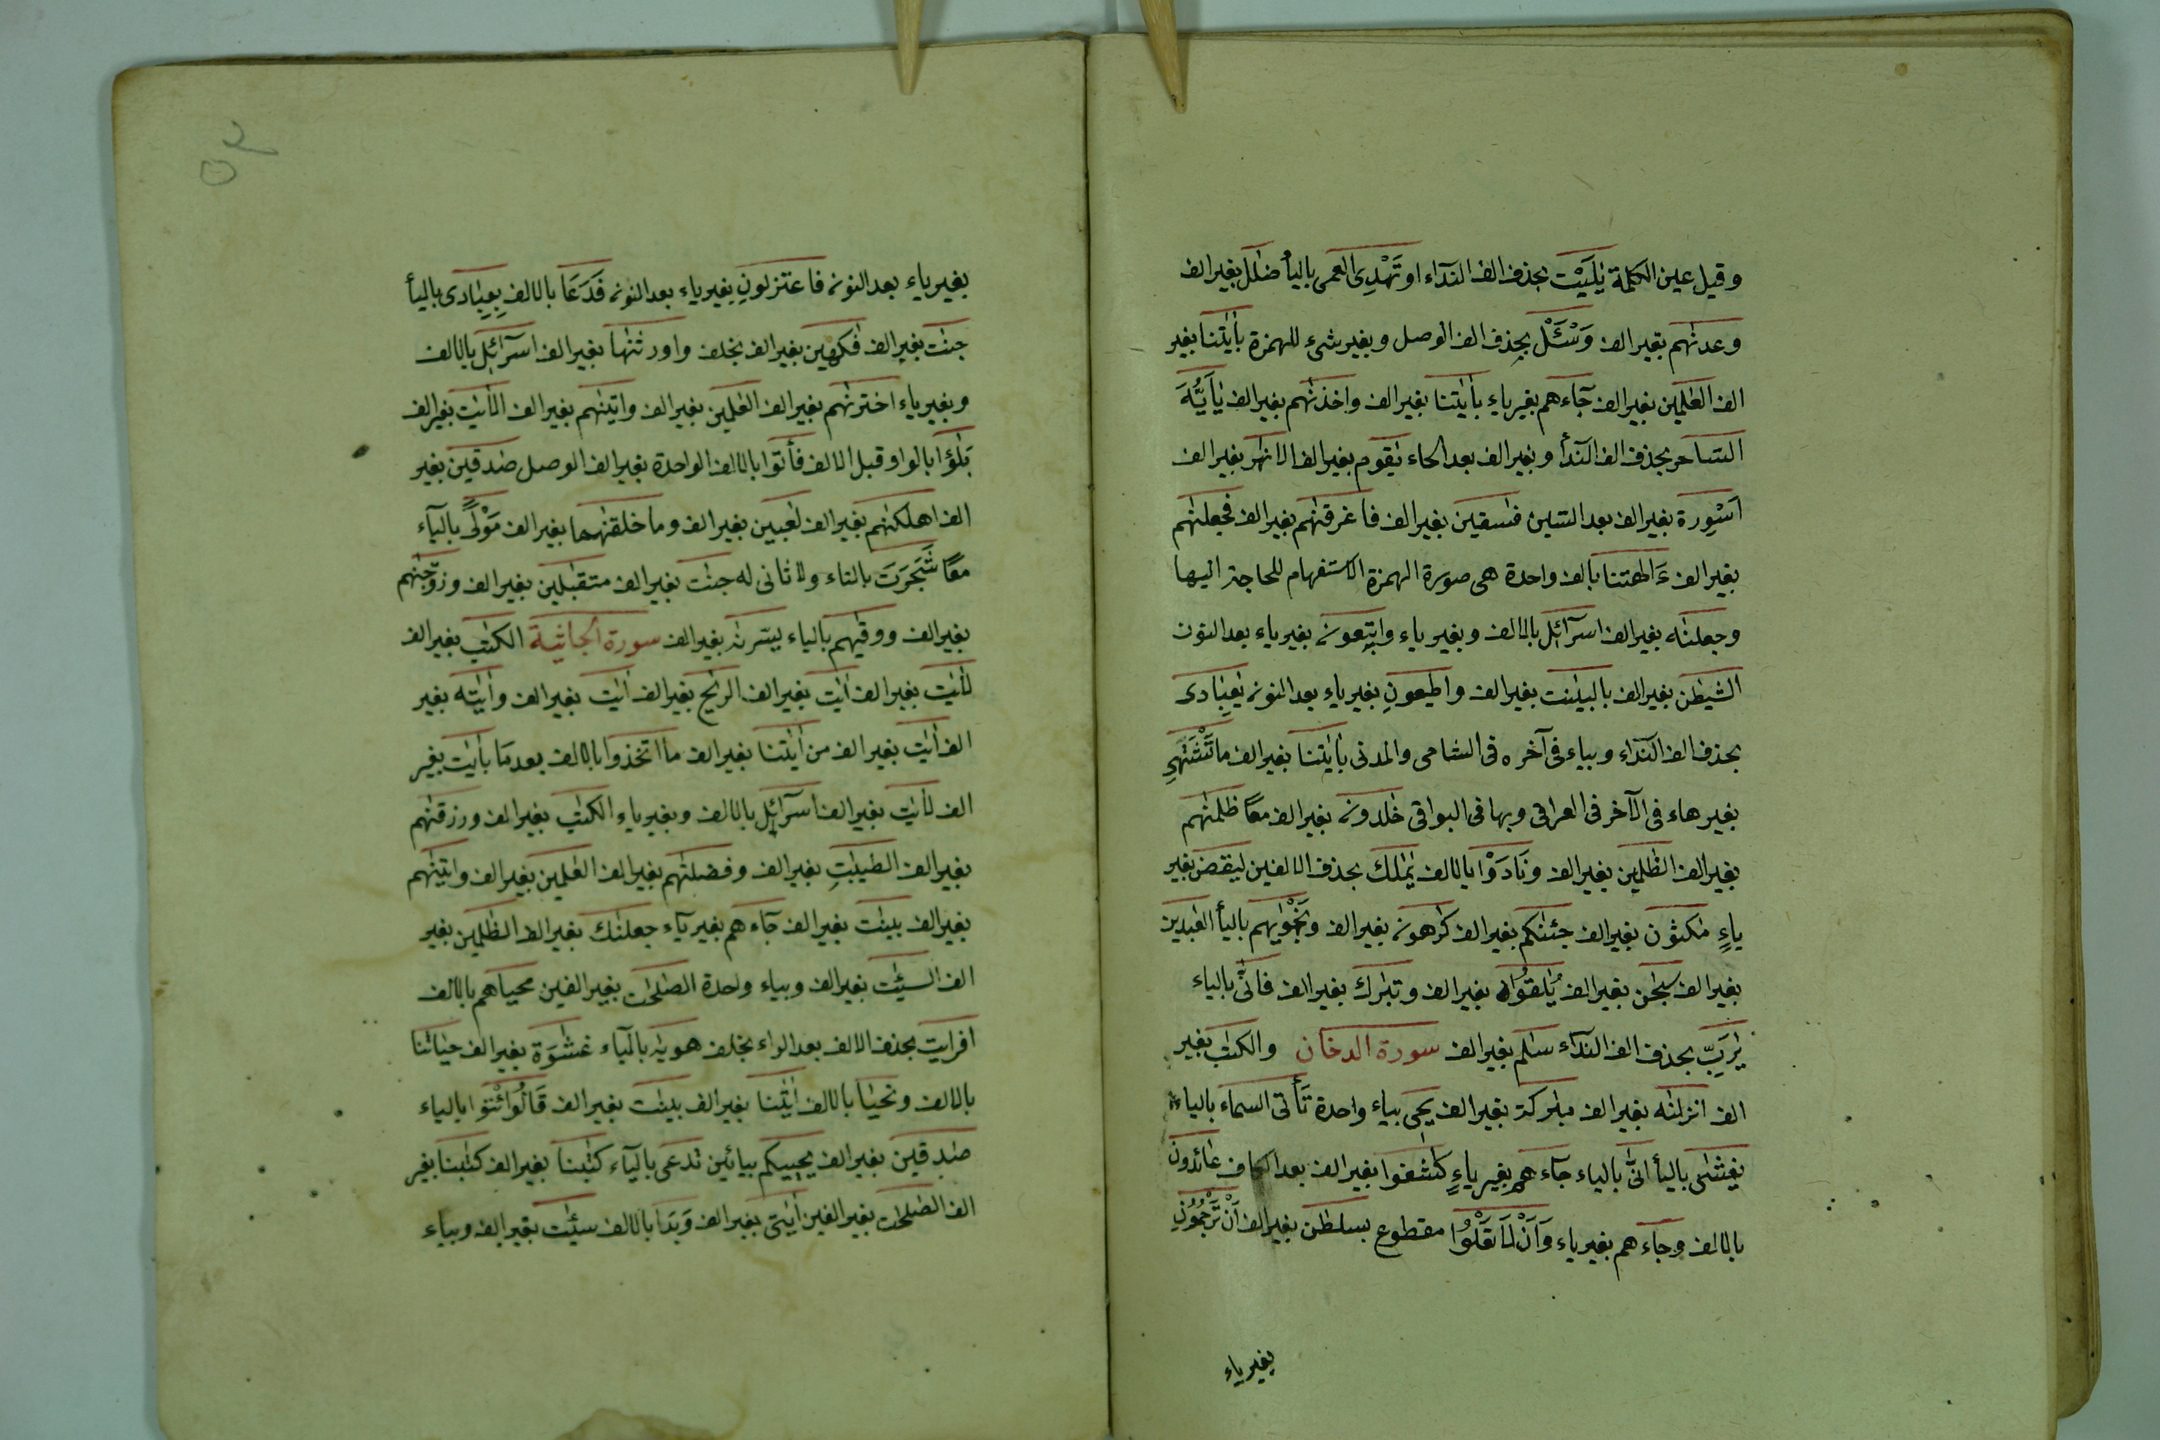 وقيل عين الكلمة يٰلَيْت بحذف الف النداء او تَهْدِى العمى باليأ ضلل بغير الف
وعدنٰهم بغير الف وَسْئَلْ بحذف الف الوصل وبغير شىء للهمزة بأيٰتنا بغير
الف العٰلمين بغير الف جآءهم بغير ياء بأيٰتنا بغير الف واخذنٰهم بغير الف يٰأَيُّهَ
الساحر بحذف الف الندأ وبغير الف بعد الحاء يٰقوم بغير الف الانهٰر بغير الف
اَسْوِرة بغير الف بعد السين فٰسقين بغير الف فاغرقنٰهم بغير الف فجعلنٰهم
بغير الف ءَالهتنا بالف واحدة هى صورة الهمزة الاستفهام للحاجة اليها
وجعلنٰه بغير الف اسرآئل بالالف وبغير ياء واتبعون بغير ياء بعد النون
الشيطٰن بغير الف بالبينٰت بغير الف واطيعونِ بغير ياء بعد النون يٰعبادى
بحذف الف النداء وبياء فى آخره فى الشامى والمدنى بأيٰتنا بغير الف ما تَشْتَهِى
بغير هاء فى الآخر فى العراقى وبها فى البواقى خٰلدون بغير الف معًا ظلمنٰهم
بغير الف الظٰلمين بغير الف ونَادَوْا بالالف يٰمٰلك بحذف الالفين ليقض بغير
ياءٍ مٰكثون بغير الف جئنٰكم بغير الف كٰرهون بغير الف ونَجْوٰيهم باليأ العٰبدين
بغير الف سبحٰن بغير الف يُلٰقُوا بغير الف وتبٰرك بغير الف فانّٰى بالياء
يٰرَبِّ بحذف الف النداء سلٰم بغير الف سورة الدخان والكتٰب بغير
الف انزلنٰه بغير الف مبٰركة بغير الف يحى بياء واحدة تَأتى السماء بالياء
يغشٰى باليأ انّٰى بالياء جآءهم بغير ياءٍ كاشفوا بغير الف بعد الكاف عائدون
بالالف وجآءهم بغير ياء وَاَنْ لَا تَعْلُوا مقطوع بسلطٰن بغير الف اَنْ تَرْجُمُونِ
بغير ياء
بغير ياء بعد النون فاعتزلونِ بغير ياء بعد النون فَدَعَا بالالف بِعِبادى باليأ
جنٰت بغير الف فٰكهين بغير الف بخلف واورثنٰها بغير الف اسرآئل بالالف
وبغير ياء اخترنٰهم بغير الف العٰلمين بغير الف واتينٰهم بغير الف الأيٰت بغير الف
بَلٰؤا بالواو قبل الالف فأتوا بالالف الواحدة بغير الف الوصل صٰدقين بغير
الف اهلكنٰهم بغير الف لٰعبين بغير الف وما خلقنٰهما بغير الف مَوْلًى بالياء
معًا شَجَرَتَ بالتاء ولا ثانى له جنٰت بغير الف متقٰبلين بغير الف وزوّجنٰهم
بغير الف ووقٰيهم بالياء يسّرنٰه بغير الف سورة الجاثية الكتٰب بغير الف
لأيٰت بغير الف أيٰت بغير الف الريٰح بغير الف أيٰت بغير الف وأيٰته بغير
الف أيٰت بغير الف من أيٰتنا بغير الف ما اتخذوا بالالف بعد ما بأيٰت بغير
الف لأيٰت بغير الف اسرآئل بالالف وبغير ياء الكتٰب بغير الف ورزقنٰهم
بغير الف الطيبٰتِ بغير الف وفضلنٰهم بغير الف العٰلمين بغير الف واتينٰهم
بغير الف بينٰت بغير الف جآءهم بغير يآء جعلنٰك بغير الف الظٰلمين بغير
الف السيئٰت بغير الف وبياء واحدة الصٰلحٰت بغير الفين محياهم بالالف
افرايت بحذف الالف بعد الراء بخلف هويٰه بالياء غشٰوَة بغير الف حياتنا
بالالف ونحيَا بالالف أيٰتنا بغير الف بينٰت بغير الف قَالُوا ائْتُوا بالياء
صٰدقين بغير الف يحييكم بيائين تدعى باليآء كتٰبنا بغير الف كتٰبنا بغير
الف الصٰلحٰت بغير الفين أيٰتى بغير الف وَبَدَا بالالف سيئٰت بغير الف وبياء